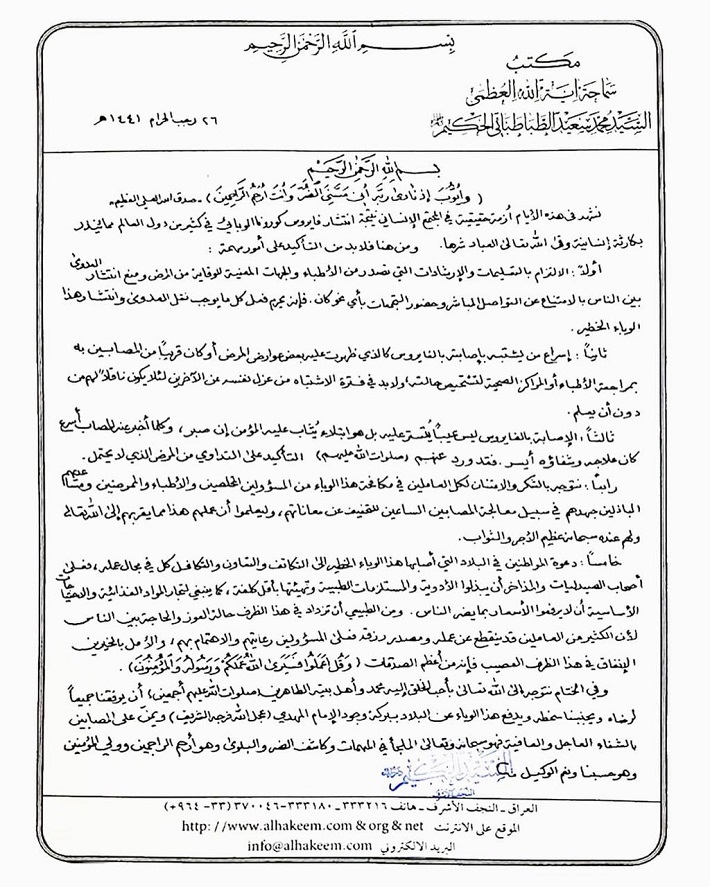 بسم الله الرحمن الرحيم
مكتب
سماحة آية الله العظمى
السيد محمد سعيد الطباطبائي الحكيم
٢٦ رجب الحرام ١٤٤١هـ
بسم الله الرحمن الرحيم
(وأيوب إذ نادى ربه أني مسني الضر وأنت أرحم الراحمين) - صدق الله العلي العظيم -
نشهد في هذه الأيام أزمة حقيقية في المجتمع الإنساني نتيجة انتشار فايروس كورونا الوبائي في كثير من دول العالم مما ينذر
بكارثة إنسانية وقى الله تعالى العباد شرها. ومن هنا فلابد من التأكيد على أمور مهمة:
أولاً: الالتزام بالتعليمات والإرشادات التي تصدر من الأطباء والجهات المعنية للوقاية من المرض ومنع انتشار العدوى
بين الناس بالامتناع عن التواصل المباشر وحضور التجمعات بأي نحو كان. فإنه يحرم فعل كل ما يوجب نقل العدوى وانتشار هذا
الوباء الخطير.
ثانياً: إسراع من يشتبه بإصابته بالفايروس كالذي ظهرت عليه بعض عوارض المرض أو كان قريباً من المصابين به
بمراجعة الأطباء أو المراكز الصحية لتشخيص حالته، ولابد في فترة الاشتباه من عزل نفسه عن الآخرين لئلا يكون ناقلاً لهم من
دون أن يعلم.
ثالثاً: الإصابة بالفايروس ليس عيباً يُتستر عليه بل هو ابتلاء يُثاب عليه المؤمن إن صبر، وكلما أخبر عنه المصاب أسرع
كان علاجه وشفاؤه أيسر. فقد ورد عنهم (صلوات الله عليهم) التأكيد على التداوي من المرض الذي لا يحتمل.
رابعاً: نتوجه بالشكر والامتنان لكل العاملين في مكافحة هذا الوباء من المسؤولين المخلصين والأطباء والممرضين ومساعديهم
الباذلين جهدهم في سبيل معالجة المصابين الساعين للتخفيف عن معاناتهم، وليعلموا أن عملهم هذا مما يقربهم إلى الله تعالى
ولهم عنده سبحانه عظيم الأجر والثواب.
خامساً: دعوة المواطنين في البلاد التي أصابها هذا الوباء الخطير إلى التكاتف والتعاون والتكافل كل في مجال عمله، فعلى
أصحاب الصيدليات والمذاخر أن يبذلوا الأدوية والمستلزمات الطبية وتهيئتها بأقل كلفة، كما ينبغي لتجار المواد الغذائية والاحتياجات
الأساسية أن لا يرفعوا الأسعار بما يضر الناس. ومن الطبيعي أن تزداد في هذا الظرف حالة العوز والحاجة بين الناس
لأن الكثير من العاملين قد ينقطع عن عمله ومصدر رزقه فعلى المسؤولين رعايتهم والاهتمام بهم، والأمل بالخيرين
الإنفاق في هذا الظرف العصيب فإنه من أعظم الصدقات (وقل اعملوا فسيرى الله عملكم ورسوله والمؤمنون).
وفي الختام نتوجه إلى الله تعالى بأحب الخلق إليه محمد وأهل بيته الطاهرين (صلوات الله عليهم أجمعين) أن يوفقنا جميعاً
لرضاه ويجنبنا سخطه ويدفع هذا الوباء عن البلاد ببركة وجود الإمام المهدي (عجل الله فرجه الشريف) ويمنّ على المصابين
بالشفاء العاجل والعافية فهو سبحانه وتعالى الملجأ في المهمات وكاشف الضر والبلوى وهو أرحم الراحمين وولي المؤمنين
وهو حسبنا ونعم الوكيل
السيد الحكيم
النجف الأشرف
العراق - النجف الأشرف - هاتف ٣٣٣٢١٦ - ٣٣٣١٨٠ - ٣٧٠٠٤٦ (٣٣ - ٩٦٤+)
الموقع على الانترنت http://www.alhakeem.com & org & net
البريد الالكتروني info@alhakeem.com